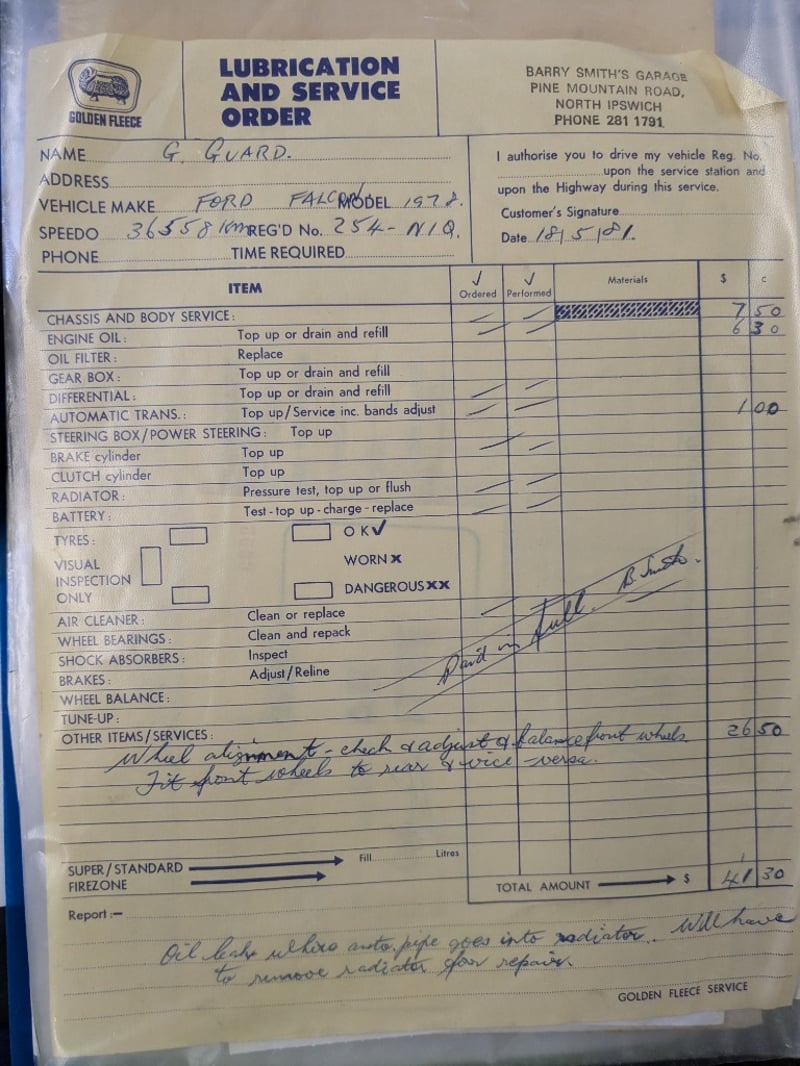 GOLDEN FLEECE
LUBRICATION
AND SERVICE
ORDER
BARRY SMITH'S GARAGE
PINE MOUNTAIN ROAD,
NORTH IPSWICH
PHONE 281 1791
NAME G. GUARD.
ADDRESS
VEHICLE MAKE FORD FALCON MODEL 1978.
SPEEDO 36558 Km REG'D No. 254-NIQ.
PHONE TIME REQUIRED
I authorise you to drive my vehicle Reg. No.
upon the service station and
upon the Highway during this service.
Customer's Signature
Date 18/5/81.
ITEM ✓ Ordered ✓ Performed Materials $ c
CHASSIS AND BODY SERVICE: 7 50
ENGINE OIL: Top up or drain and refill 6 30
OIL FILTER: Replace
GEAR BOX: Top up or drain and refill
DIFFERENTIAL: Top up or drain and refill
AUTOMATIC TRANS.: Top up/Service inc. bands adjust 1 00
STEERING BOX/POWER STEERING: Top up
BRAKE cylinder Top up
CLUTCH cylinder Top up
RADIATOR: Pressure test, top up or flush
BATTERY: Test-top up-charge-replace
TYRES: O K ✓
VISUAL
INSPECTION
ONLY
WORN X
DANGEROUS XX
AIR CLEANER: Clean or replace
WHEEL BEARINGS: Clean and repack
SHOCK ABSORBERS: Inspect
BRAKES: Adjust/Reline
Paid in full. B. Smith.
WHEEL BALANCE:
TUNE-UP:
OTHER ITEMS/SERVICES: 26 50
Wheel alignment - check & adjust & balance front wheels
Fit front wheels to rear & vice-versa.
SUPER/STANDARD Fill Litres
FIREZONE
TOTAL AMOUNT $ 41 30
Report:-
Oil leak where auto. pipe goes into radiator. Will have
to remove radiator for repair.
GOLDEN FLEECE SERVICE